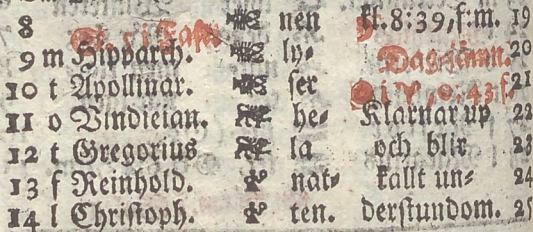 8 nen kl. 8:39, f:m. 19
9 m Hipparch. ly- Dagjämn. 20
10 t Apollinar. ser 21
11 o Vindician. he- Klarnar up 22
12 t Gregorius la och blir 23
13 f Reinhold. nat- kallt un- 24
14 l Christoph. ten. derstundom. 25